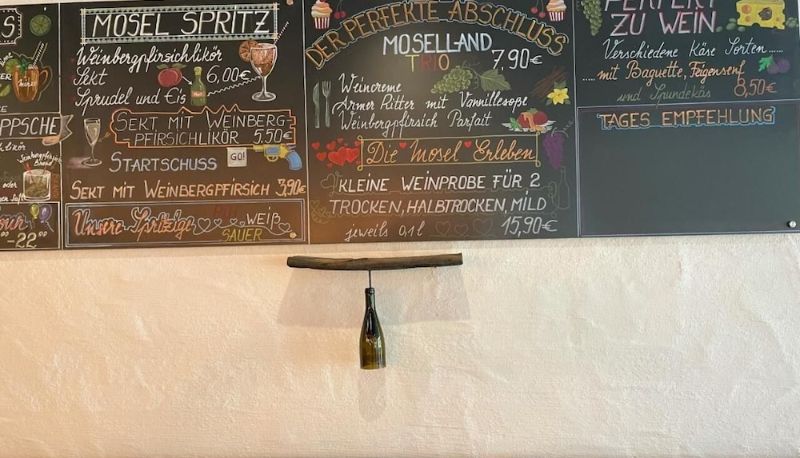 S
PPSCHE
oder
-22.00
MOSEL SPRITZ
Weinbergpfirsichlikör
Sekt 6,00€
Sprudel und Eis
SEKT MIT WEINBERG
PFIRSICHLIKÖR 5.50€
STARTSCHUSS GO!
SEKT MIT WEINBERGPFIRSICH 3,90€
Unsere Spritzige ROT WEIß
SAUER
DER PERFEKTE ABSCHLUSS
MOSELLAND
TRIO 7,90€
Weincreme
Armer Ritter mit Vanillesoße
Weinbergpfirsich Parfait
Die Mosel Erleben
KLEINE WEINPROBE FÜR 2
TROCKEN, HALBTROCKEN, MILD
jeweils 0,1 l 15,90€
PERFEKT
ZU WEIN
Verschiedene Käse Sorten.....
.....mit Baguette, Feigensenf
und Spundekäs 8,50€
TAGES EMPFEHLUNG